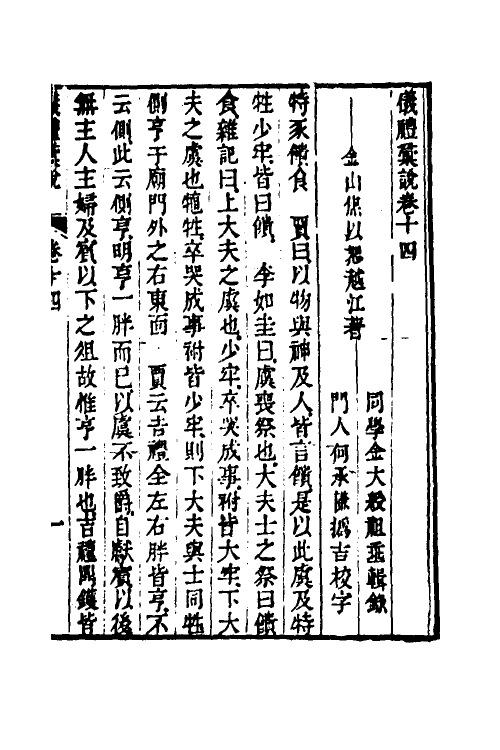 儀禮彙說卷十四
同學金大殺祖垂輯錄
金山焦以恕越江著
門人何承燻撝吉校字
特豕饋食　賈曰以物與神及人皆言饋是以此虞及特
牲少牢皆曰饋　李如圭曰虞喪祭也大夫士之祭曰饋
食雜記曰上大夫之虞也少牢卒哭成事祔皆大牢下大
夫之虞也犆牲卒哭成事祔皆少牢則下大夫與士同牲
側亨于廟門外之右東面　賈云吉禮全左右胖皆亨不
云側此云側亨明亨一胖而已以虞不致爵自獻賓以後
無主人主婦及賓以下之俎故惟亨一胖也吉禮四鑊皆
儀禮彙說　卷十四　一